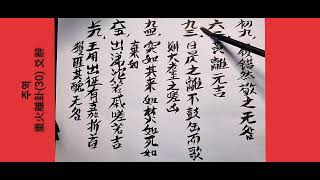 주역
重火離卦(30) 爻辭
初九 履錯然敬之无咎
六二 黃離元吉
九三 日昃之離不鼓缶而歌
則大耋之嗟凶
九四 突如其来如焚如死如
棄如
六五 出涕沱若戚嗟若吉
上九 王用出征有嘉折首
獲匪其醜无咎